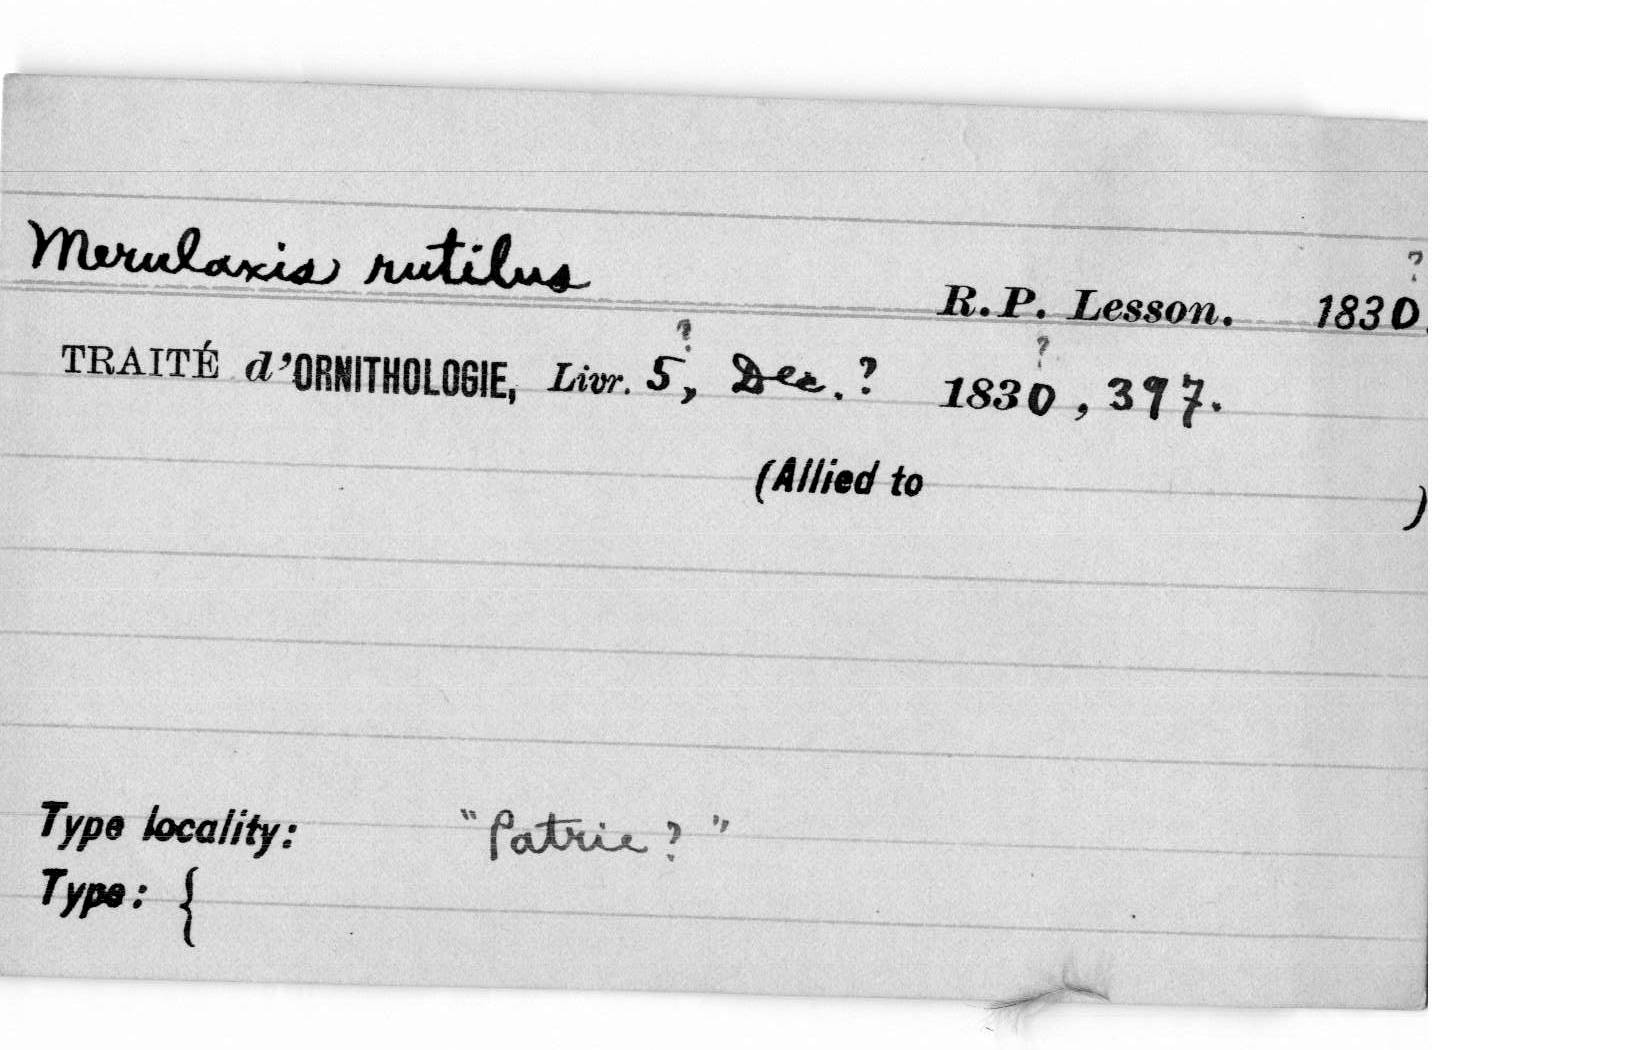 ?
Merulaxis rutilus R.P. Lesson. 1830.
? ?
TRAITÉ d'ORNITHOLOGIE, Livr. 5, Dec.? 1830, 397.
(Allied to )
Type locality: "Patrie?"
Type: {